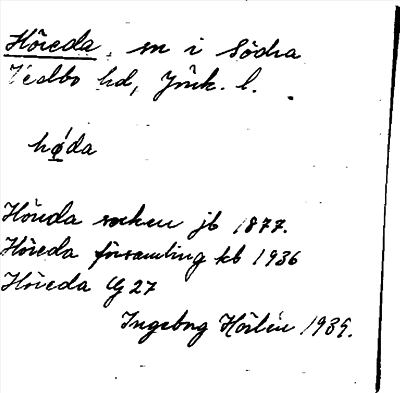 Höreda, sn i Södra
Vedbo hd, Jönk. l.
hǿda
Höreda socken jb 1877.
Höreda församling kb 1936
Höreda Gj 27
Ingeborg Hörlén 1939.